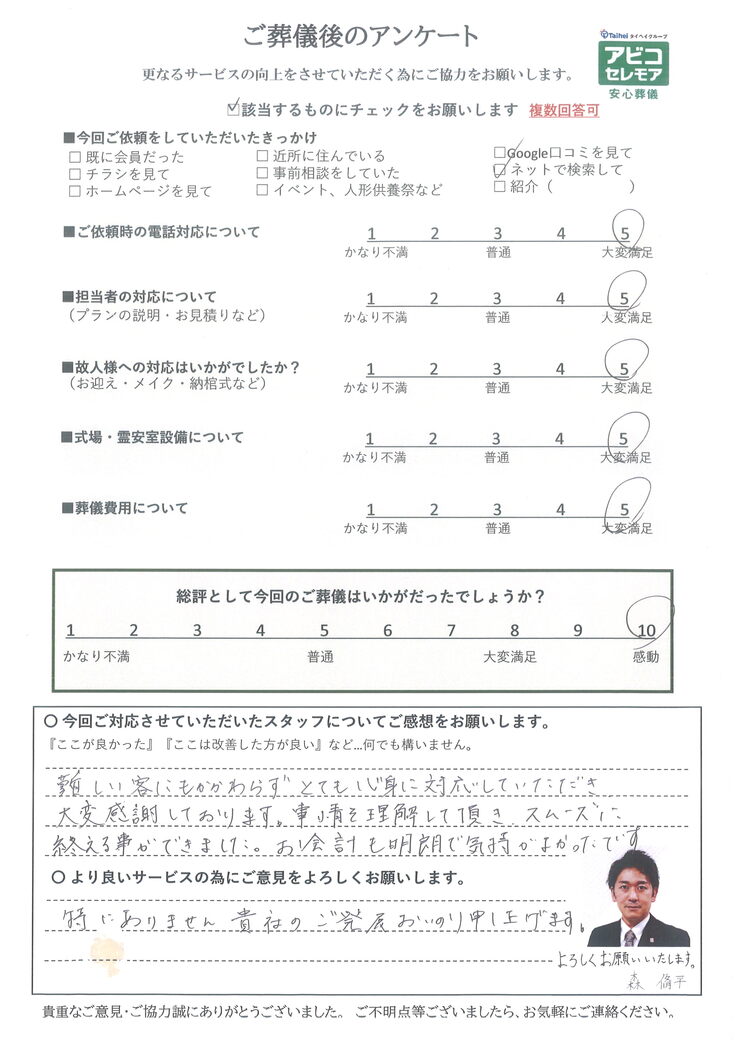 ご葬儀後のアンケート
Taihei タイヘイグループ
アビコ
セレモア
安心葬儀
更なるサービスの向上をさせていただく為にご協力をお願いします。
☑該当するものにチェックをお願いします 複数回答可
■今回ご依頼をしていただいたきっかけ
□ 既に会員だった □ 近所に住んでいる □Google口コミを見て
□ チラシを見て □ 事前相談をしていた ☑ ネットで検索して
□ ホームページを見て □ イベント、人形供養祭など □ 紹介（ ）
■ご依頼時の電話対応について 1 2 3 4 5
かなり不満 普通 大変満足
■担当者の対応について 1 2 3 4 5
（プランの説明・お見積りなど） かなり不満 普通 大変満足
■故人様への対応はいかがでしたか？ 1 2 3 4 5
（お迎え・メイク・納棺式など） かなり不満 普通 大変満足
■式場・霊安室設備について 1 2 3 4 5
かなり不満 普通 大変満足
■葬儀費用について 1 2 3 4 5
かなり不満 普通 大変満足
総評として今回のご葬儀はいかがだったでしょうか？
1 2 3 4 5 6 7 8 9 10
かなり不満 普通 大変満足 感動
〇 今回ご対応させていただいたスタッフについてご感想をお願いします。
『ここが良かった』『ここは改善した方が良い』など…何でも構いません。
難しい客にもかかわらずとても心身に対応していただき
大変感謝しております。事情を理解して頂き スムーズに
終える事ができました。お会計も明朗で気持がよかったです
〇 より良いサービスの為にご意見をよろしくお願いします。
特にありません 貴社のご発展おいのり申し上げます。
よろしくお願いいたします。
森 脩平
貴重なご意見・ご協力誠にありがとうございました。 ご不明点等ございましたら、お気軽にご連絡ください。